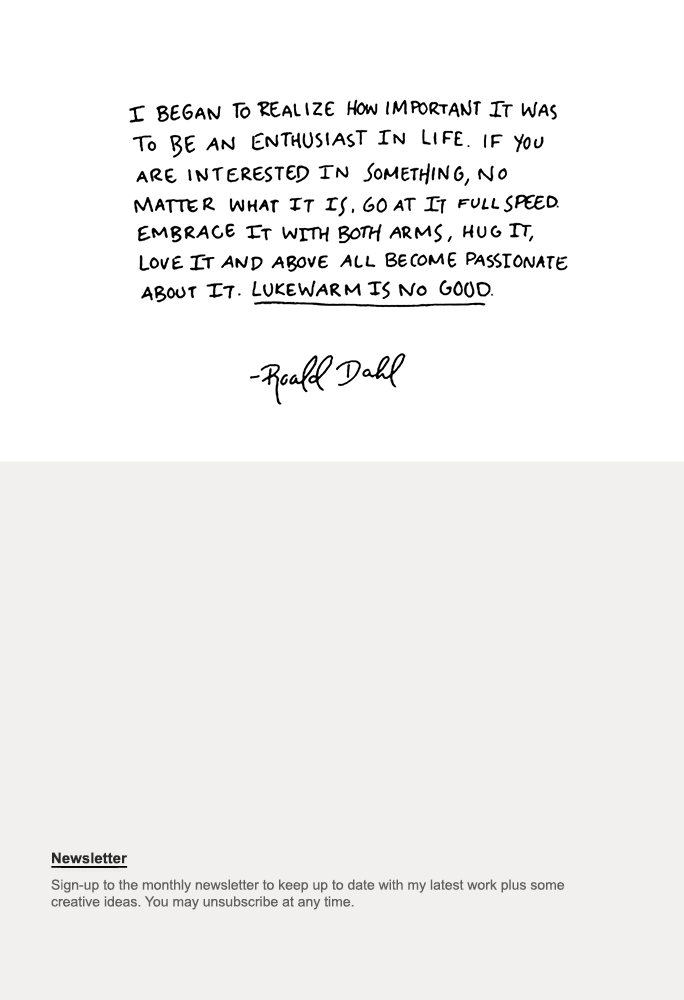 I BEGAN TO REALIZE HOW IMPORTANT IT WAS
TO BE AN ENTHUSIAST IN LIFE. IF YOU
ARE INTERESTED IN SOMETHING, NO
MATTER WHAT IT IS, GO AT IT FULL SPEED.
EMBRACE IT WITH BOTH ARMS, HUG IT,
LOVE IT AND ABOVE ALL BECOME PASSIONATE
ABOUT IT. LUKEWARM IS NO GOOD.
-Roald Dahl
Newsletter
Sign-up to the monthly newsletter to keep up to date with my latest work plus some
creative ideas. You may unsubscribe at any time.